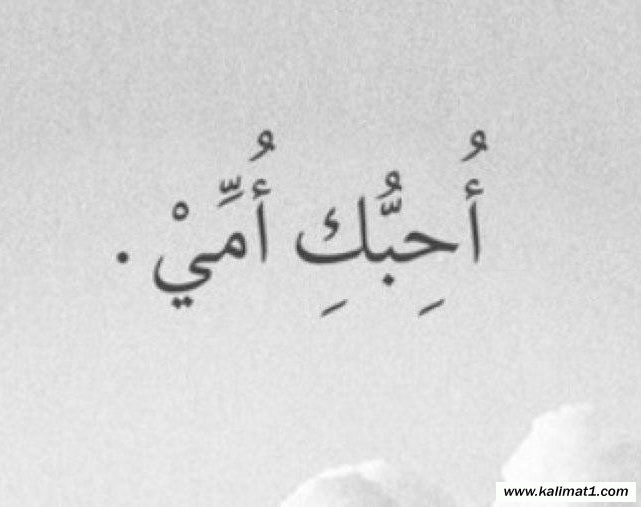 أُحِبُّكِ أُمِّيْ .
www.kalimat1.com